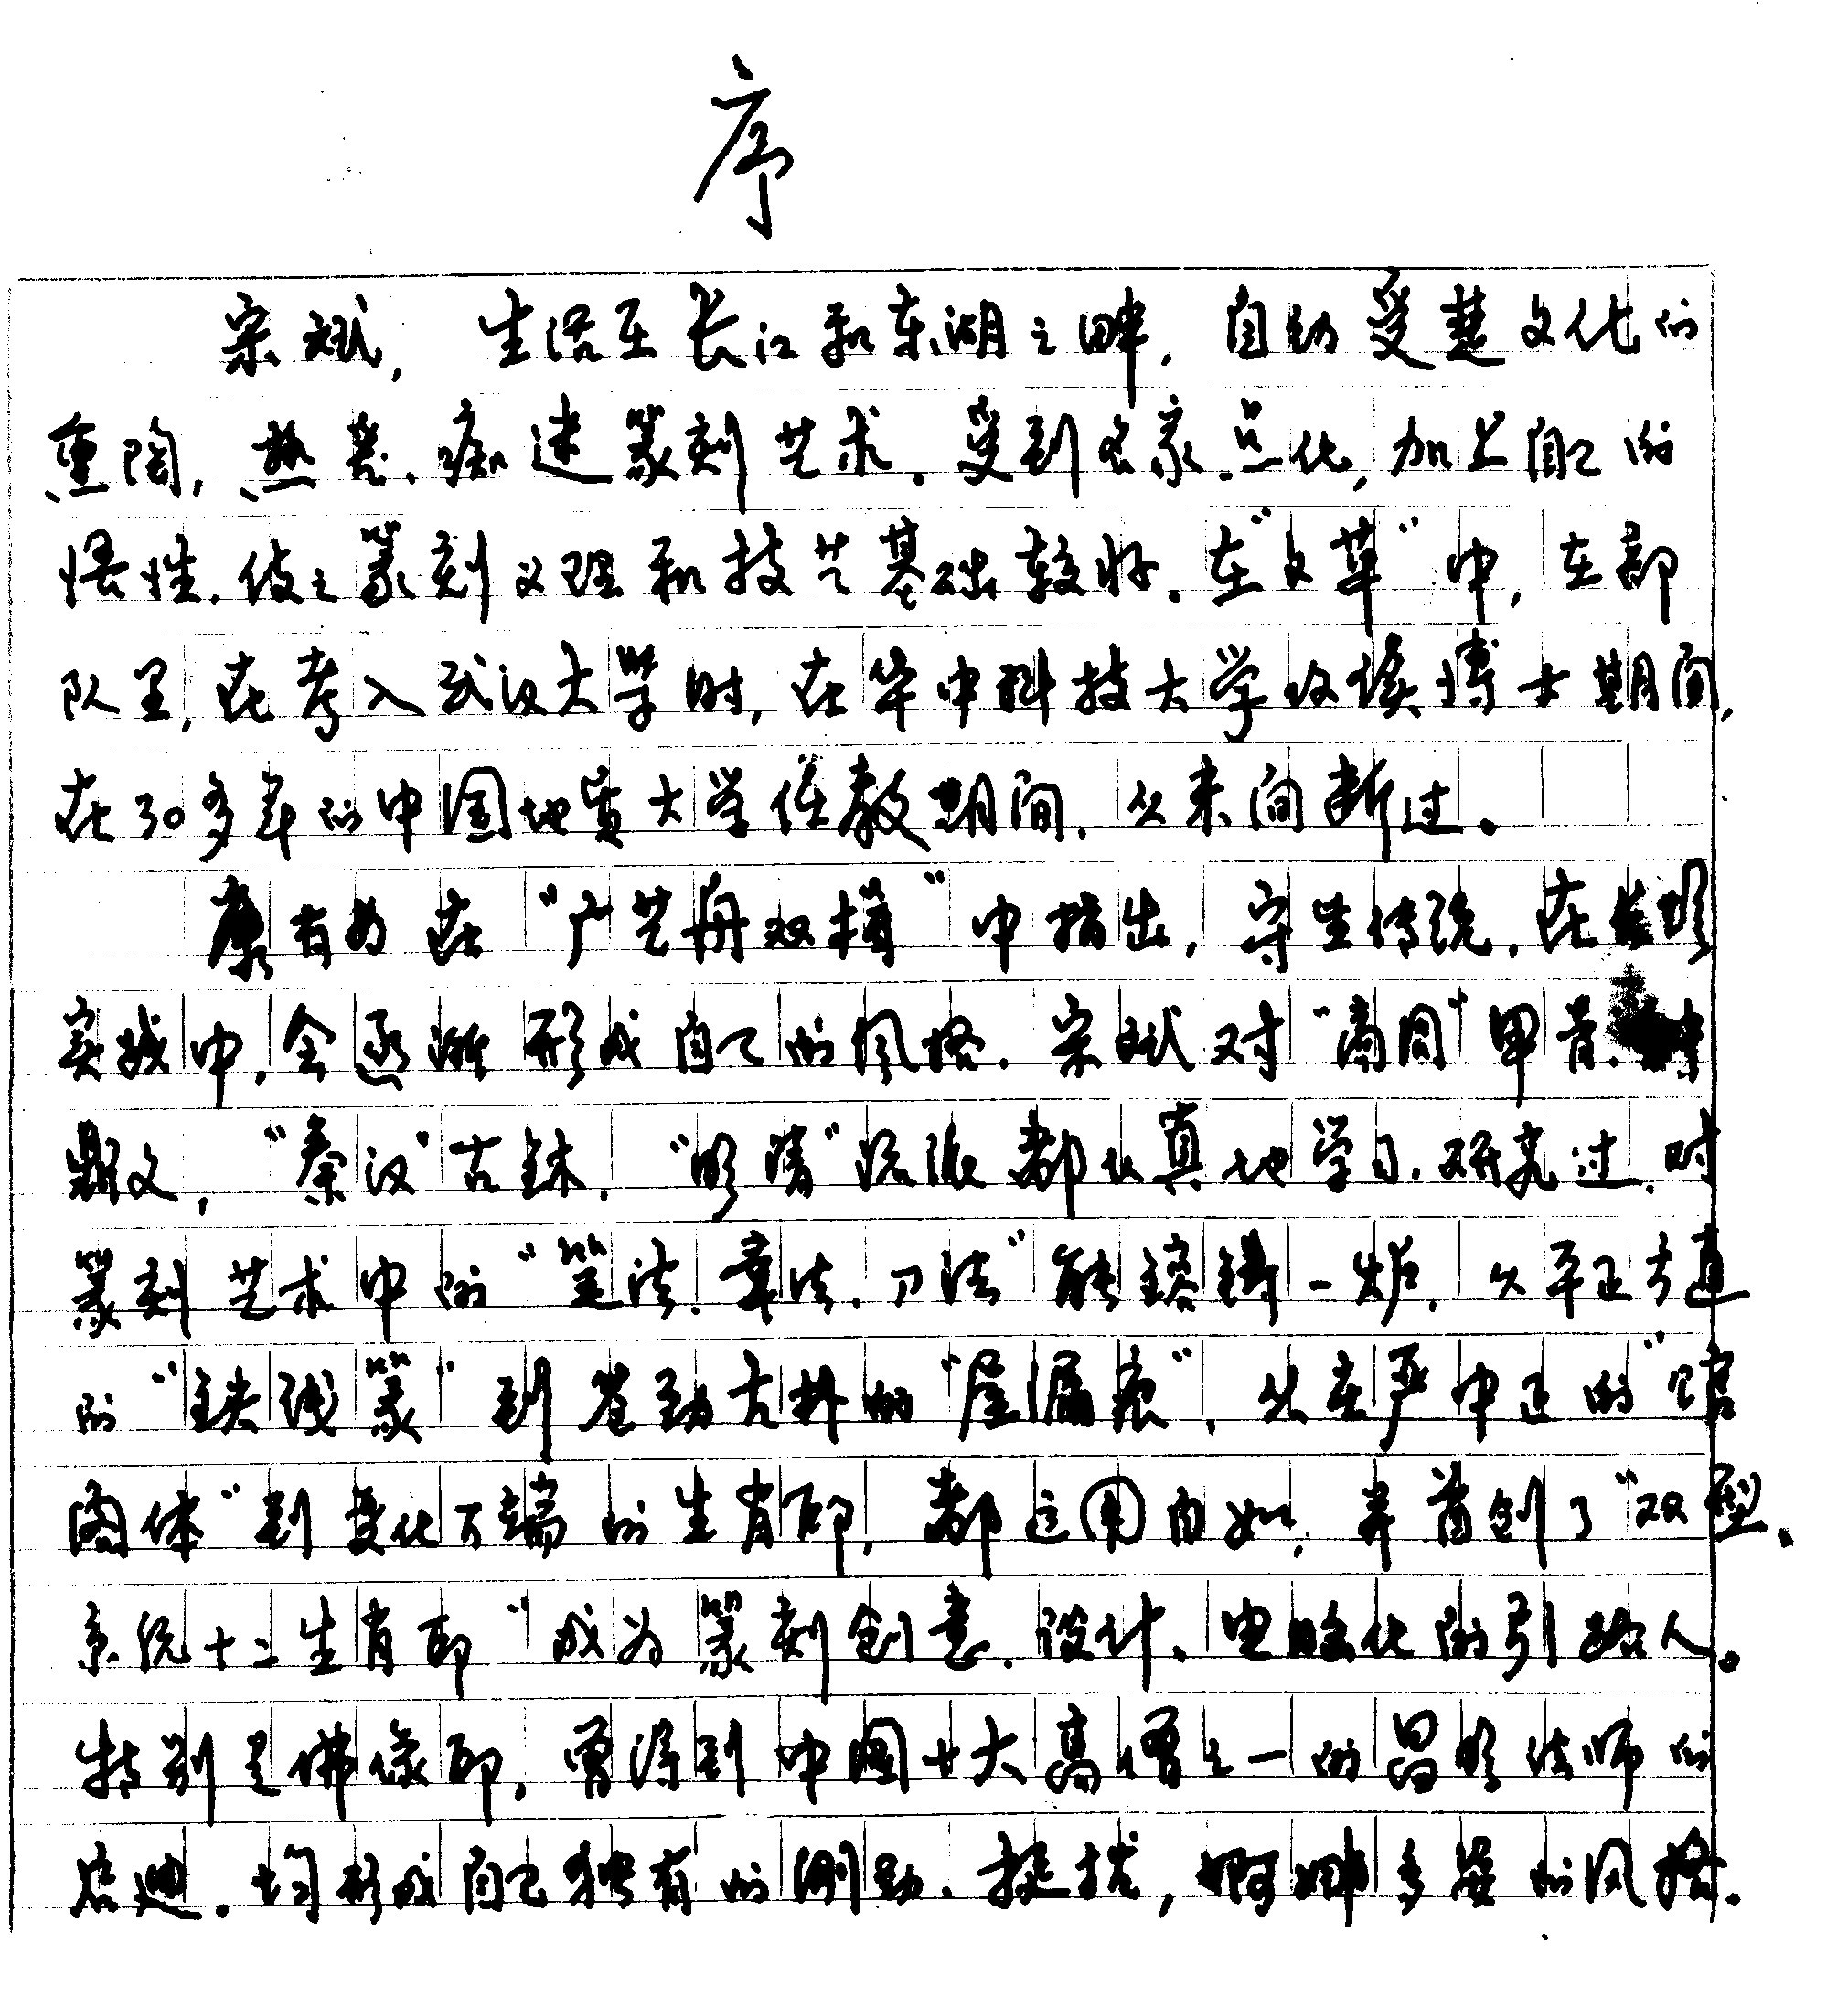 序
宗斌，生活在长江和东湖之畔，自幼受楚文化的
熏陶，热爱、痴迷篆刻艺术，受到名家点化，加上自己的
悟性，使之篆刻义理和技艺基础较好。在“文革”中，在部
队里，在考入武汉大学时，在华中科技大学攻读博士期间，
在30多年的中国地质大学任教期间，从未间断过。
康有为在“广艺舟双楫”中指出，守住传统，在长期
实践中，会逐渐形成自己的风格。宗斌对“商周”甲骨、钟
鼎文，“秦汉”古鉢，“明清”流派都认真地学习、研究过，对
篆刻艺术中的“笔法、章法、刀法”能镕铸一炉，从平正方直
的“铁线篆”到苍劲古朴的“屋漏痕”，从庄严中正的“馆
阁体”到变化万端的生肖印，都运用自如，并首创了“双型、
系统十二生肖印”成为篆刻创意、设计、电脑化的引路人。
特别是佛像印，曾得到中国十大高僧之一的昌明法师的
启迪，均形成自己独有的刚劲、挺拔，婀娜多姿的风格。